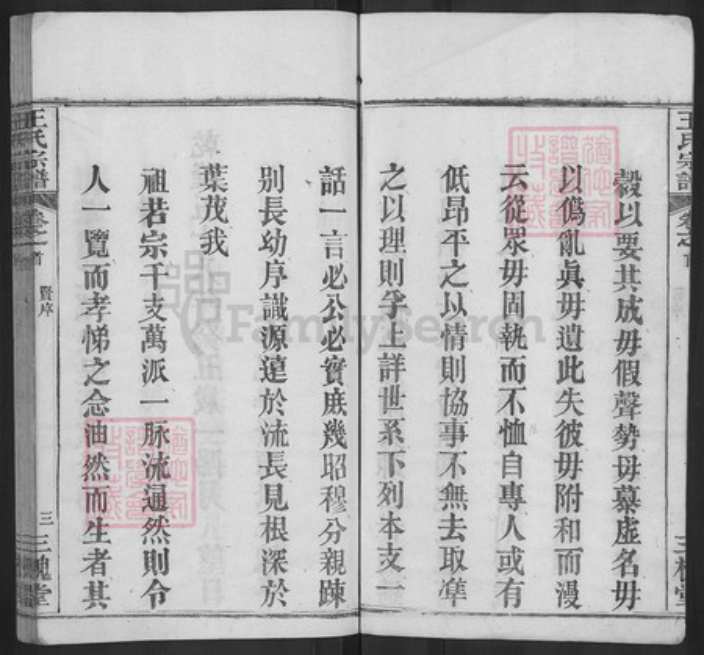 王氏宗譜
穀以要其成毋假聲勢毋慕虛名毋
以僞亂眞毋遺此失彼毋附和而漫
云從眾毋固執而不恤自專人或有
低昂平之以情則協事不無去取準
之以理則孚上詳世系下列本支一
話一言必公必實庶幾昭穆分親踈
別長幼序識源遠於流長見根深於
葉茂我
祖若宗千支萬派一脉流通然則令
人一覽而孝悌之念油然而生者其
王氏宗譜
卷之首
賢序
三
三槐堂
FamilySearch